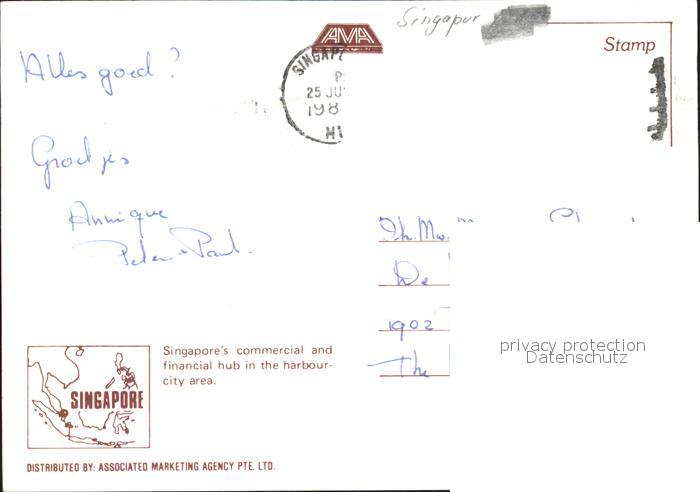 Singapur
AMA
Stamp
Alles goed?
SINGAP
P
25 JU
198
Groetjes
Annique
Peter-Paul.
De
1902
The
privacy protection
Datenschutz
Singapore's commercial and
financial hub in the harbour-
city area.
SINGAPORE
DISTRIBUTED BY: ASSOCIATED MARKETING AGENCY PTE. LTD.